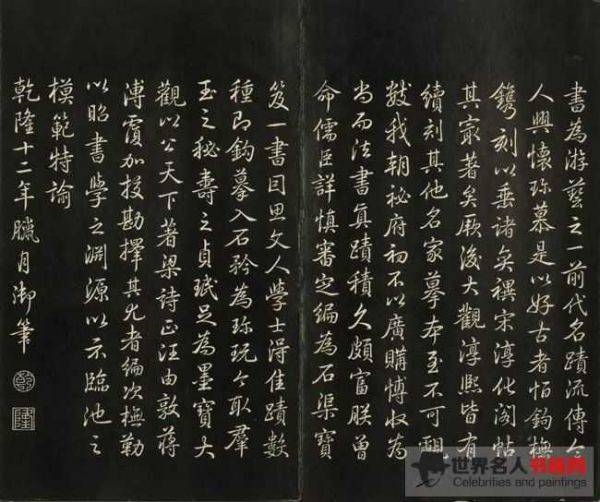 書為游藝之一前代名蹟流傳令
人興懷珍慕是以好古者恒鈎橅
鐫刻以垂諸奕禩宋淳化閣帖
其冣著矣厥後大觀淳熙皆有
續刻其他名家摹本至不可覼
縷我朝秘府初不以廣購博收為
尚而法書真蹟積久頗富朕曾
命儒臣詳慎審定編為石渠寶
笈一書因思文人學士得佳蹟數
種即鈎摹入石矜為珍玩今取群
玉之秘壽之貞珉足為墨寶大
觀以公天下著梁詩正汪由敦蔣
溥覆加挍勘擇其尤者編次橅勒
以昭書學之淵源以示臨池之
模範特諭
乾隆十二年臘月御筆
乾
隆
世界名人书画网
Celebrities and paintings